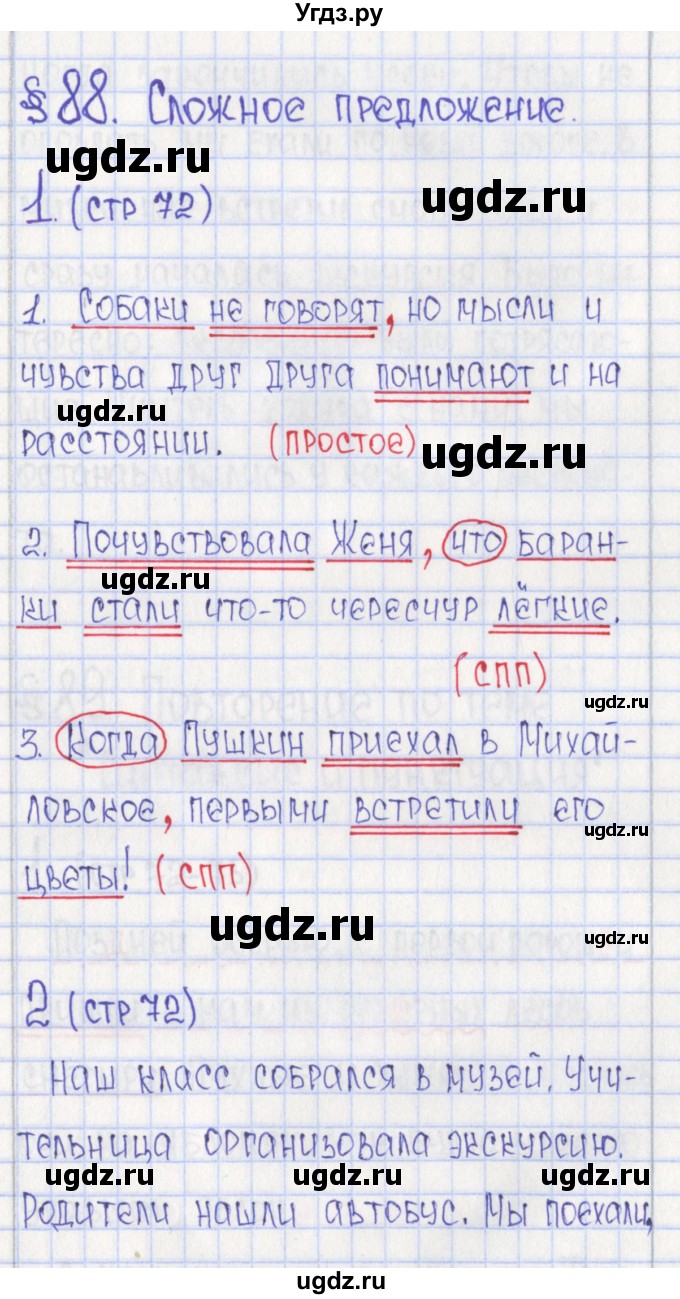 Угдз.ру
§ 88. Сложное предложение.
ugdz.ru
ugdz.ru
1. (стр 72)
1. Собаки не говорят, но мысли и
чувства друг друга понимают и на
ugdz.ru
расстоянии. (простое)
ugdz.ru
2. Почувствовала Женя, что баран-
ugdz.ru
ки стали что-то чересчур лёгкие.
(спп)
ugdz.ru
3. Когда Пушкин приехал в Михай-
ловское, первыми встретили его
ugdz.ru
цветы! (спп)
ugdz.ru
ugdz.ru
2 (стр 72)
Наш класс собрался в музей. Учи-
тельница организовала экскурсию.
ugdz.ru
ugdz.ru
ugdz.ru
Родители нашли автобус. Мы поехали,
ugdz.ru